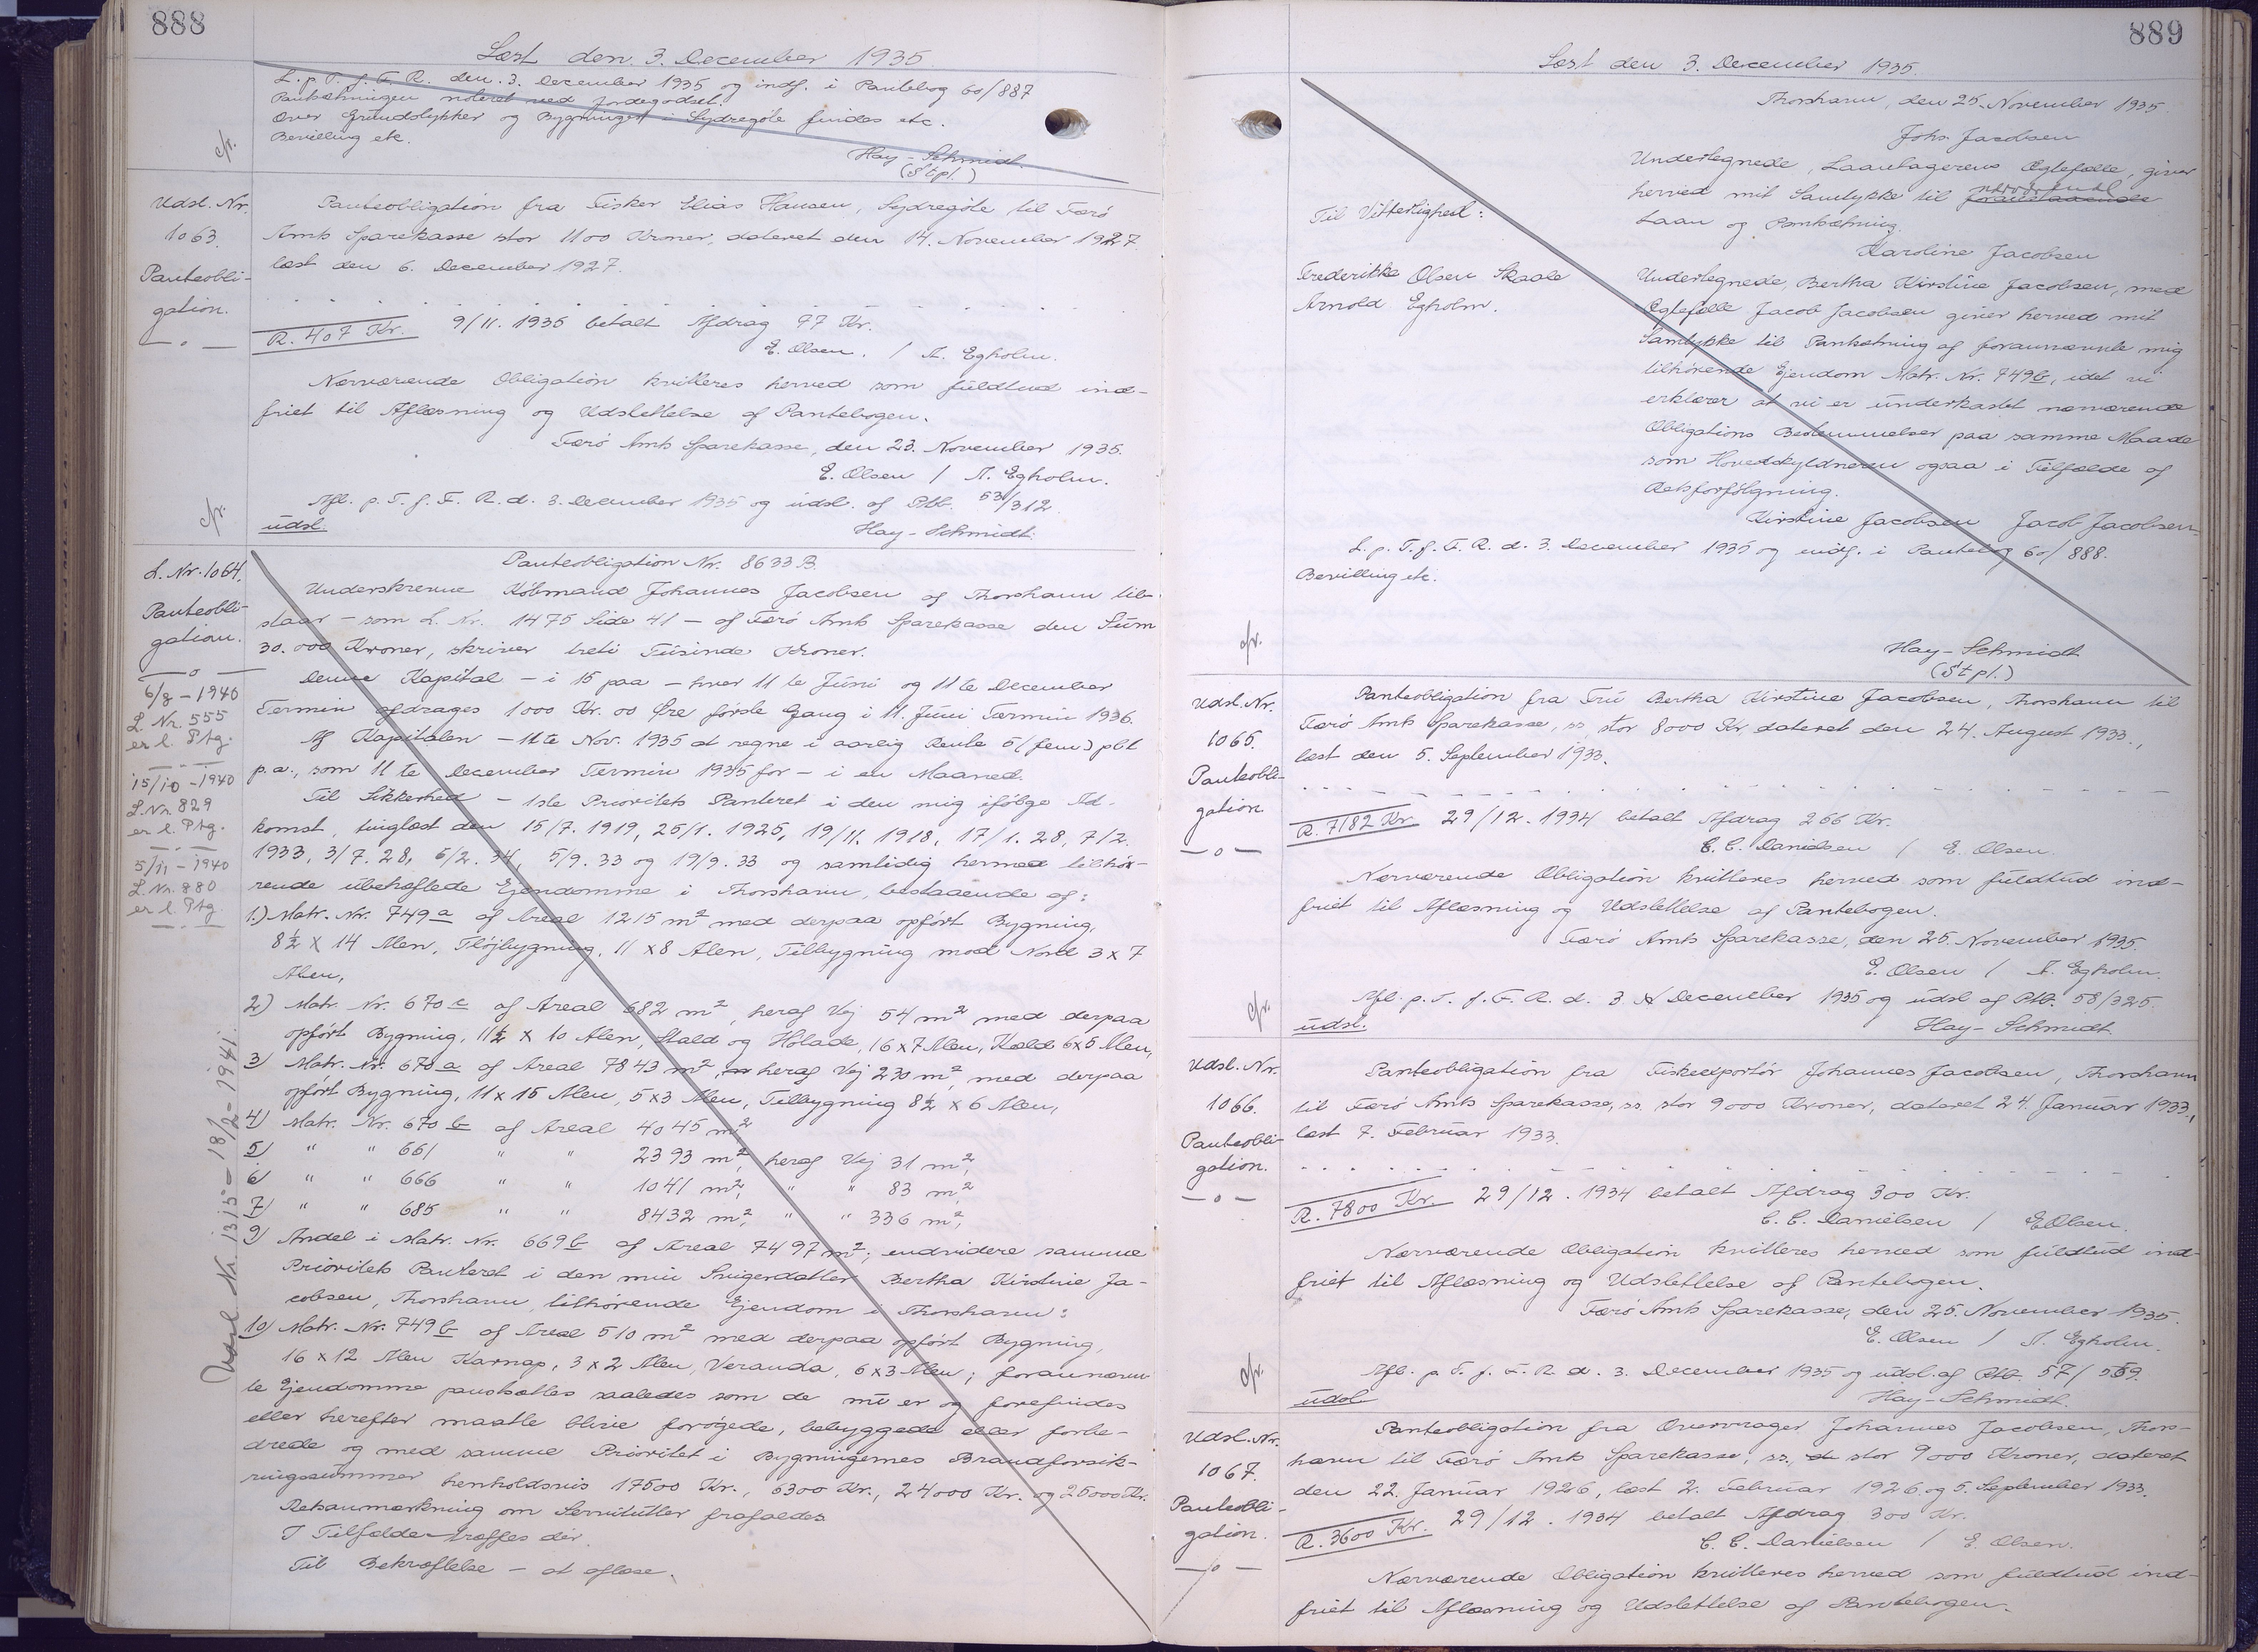 888
Læst den 3. December 1935
L. p. T. f. F. R. den. 3. December 1935 og indf. i Pantebog 60/887
Pantsætningen noteret ved Jordegodset.
Over Grundstykker og Bygninger i Sydregöte findes etc.
Bevilling etc.
cfr.
Hay-Schmidt.
(Stpl.)
Udsl. Nr.
1063.
Pantebobli-
gation.
— o —
Panteobligation fra Fisker Elias Hansen, Sydregöte til Færö
Amts Sparekasse stor 1100 Kroner, dateret den 14. November 1927
læst den 6. December 1927.
R. 407 Kr. 9/11. 1935 betalt Afdrag 77 Kr.
E. Olsen. / A. Egholm.
Nærværende Obligation kvitteres herved som fuldtud ind-
friet til Aflæsning og Udslettelse af Pantebogen.
Færö Amts Sparekasse, den 23. November 1935.
E. Olsen / A. Egholm.
Afl. p. T. f. F. R. d. 3. December 1935 og udsl. af Ptb. 53/312.
cfr.
udsl.
Hay-Schmidt.
L. Nr. 1064.
Panteobli-
gation.
— o —
6/8 - 1940
L. Nr. 555
er l. Ptg.
15/10 - 1940
L. Nr. 829
er l. Ptg.
5/11 - 1940
L. Nr. 880
er l. Ptg.
Udsl. Nr. 1315 - 18/2 - 1941.
Panteobligation Nr. 8633 B.
Underskrevne Köbmand Johannes Jacobsen af Thorshavn til-
staar - som L. Nr. 1475 Side 41 - af Færö Amts Sparekasse den Sum
30.000 Kroner, skriver treti Tusinde Kroner.
Denne Kapital - i 15 paa - hver 11te Juni og 11te December
Termin afdrages 1000 Kr. 00 Øre förste Gang i 11. Juni Termin 1936.
Af Kapitalen - 11te Nov. 1935 at regne i aarlig Rente 5 (fem) pCt
p.a., som 11te December Termin 1935 for - i en Maaned.
Til Sikkerhed - 1ste Prioritets Panteret i den mig ifölge Ad-
komst, tinglæst den 15/7. 1919, 25/1. 1925, 19/11. 1918, 17/1. 28, 7/2.
1933, 3/7. 28, 6/2. 34, 5/9. 33 og 19/9. 33 og samtidig hermed tilhö-
rende ubehæftede Ejendomme i Thorshavn, bestaaende af:
1.) Matr. Nr. 749a af Areal 1215 m² med derpaa opfört Bygning,
8½ x 14 Alen, Flöjbygning, 11 x 8 Alen, Tilbygning mod Nord 3 x 7
Alen,
2) Matr. Nr. 670c af Areal 682 m², heraf Vej 54 m² med derpaa
opfört Bygning, 11½ x 10 Alen, Stald og Hölade, 16 x 7 Alen, Kæld 6x5 Alen,
3) Matr. Nr. 670a af Areal 7843 m², heraf Vej 230 m², med derpaa
opfört Bygning, 11 x 15 Alen, 5 x 3 Alen, Tilbygning 8½ x 6 Alen,
4) Matr. Nr. 670b af Areal 4045 m²
5) " " 661 " " 2393 m², heraf Vej 31 m²,
6) " " 666 " " 1041 m², " " 83 m²,
7) " " 685 " " 8432 m², " " 336 m²,
9) Andel i Matr. Nr. 669b af Areal 7497 m²; endvidere samme
Prioritets Panteret i den min Svigerdatter Bertha Kirstine Ja-
cobsen, Thorshavn, tilhörende Ejendom i Thorshavn:
10) Matr. Nr. 749b af Areal 510 m² med derpaa opfört Bygning,
16 x 12 Alen Karnap, 3 x 2 Alen, Veranda, 6 x 3 Alen; forannævn-
te Ejendomme pantsættes saaledes som de nu er og forefindes
eller herefter maatte blive forögede, bebyggede eller forbe-
drede og med samme Prioritet i Bygningernes Brandforsik-
ringssummer henholdsvis 17500 Kr., 6300 Kr., 24000 Kr. og 25000 Kr.
Retsanmærkning om Servitutter frafaldes
I Tilfælde - træffes dér.
Til Bekræftelse - at aflæse.
889
Læst den 3. December 1935.
Thorshavn, den 25. November 1935.
Johs. Jacobsen
Undertegnede, Laantagerens Ægtefælle, giver
herved mit Samtykke til foranstaaende
Laan og Pantsætning.
Karoline Jacobsen
Til Vitterlighed:
Frederikke Olsen Skaale
Arnold Egholm.
Undertegnede, Bertha Kirstine Jacobsen, med
Ægtefælle Jacob Jacobsen giver herved mit
Samtykke til Pantsætning af forannævnte mig
tilhörende Ejendom Matr. Nr. 749b, idet vi
erklærer at vi er underkastet nærværende
Obligations Bestemmelser paa samme Maade
som Hovedskyldneren ogsaa i Tilfælde af
Retsforfölgning.
Kirstine Jacobsen Jacob Jacobsen
L. p. T. f. F. R. d. 3. December 1935 og indf. i Pantebog 60/888.
Bevilling etc.
cfr.
Hay-Schmidt
(Stpl.)
Udsl. Nr.
1065.
Panteobli-
gation
— o —
Panteobligation fra Fru Bertha Kirstine Jacobsen, Thorshavn til
Færö Amts Sparekasse, ss. stor 8000 Kr. dateret den 24. August 1933.,
læst den 5. September 1933.
R. 7182 Kr. 29/12. 1934 betalt Afdrag 266 Kr.
C. C. Danielsen / E. Olsen.
Nærværende Obligation kvitteres herved som fuldtud ind-
friet til Aflæsning og Udslettelse af Pantebogen.
Færö Amts Sparekasse, den 25. November 1935.
E. Olsen / A. Egholm.
Afl. p. T. f. F. R. d. 3 December 1935 og udsl af Ptb. 58/325.
cfr.
udsl.
Hay-Schmidt.
Udsl. Nr.
1066.
Panteobli-
gation.
— o —
Panteobligation fra Fiskeexportör Johannes Jacobsen, Thorshavn
til Færö Amts Sparekasse, ss. stor 9000 Kroner, dateret 24. Januar 1933.,
læst 7. Februar 1933.
R. 7800 Kr. 29/12. 1934 betalt Afdrag 300 Kr.
C. C. Danielsen / E. Olsen.
Nærværende Obligation kvitteres herved som fuldtud ind-
friet til Aflæsning og Udslettelse af Pantebogen.
Færö Amts Sparekasse, den 25. November 1935.
E. Olsen / A. Egholm.
Afl. p. T. f. F. R. d. 3. December 1935 og udsl. af Ptb. 57/559.
cfr.
udsl
Hay-Schmidt.
Udsl. Nr.
1067.
Panteobli-
gation.
— o —
Panteobligation fra Overvrager Johannes Jacobsen, Thors-
havn til Færö Amts Sparekasse, ss., stor 9000 Kroner, dateret
den 22. Januar 1926, læst 2. Februar 1926 og 5. September 1933.
R. 3600 Kr. 29/12. 1934 betalt Afdrag 300 Kr.
C. C. Danielsen / E. Olsen.
Nærværende Obligation kvitteres herved som fuldtud ind-
friet til Aflæsning og Udslettelse af Pantebogen.